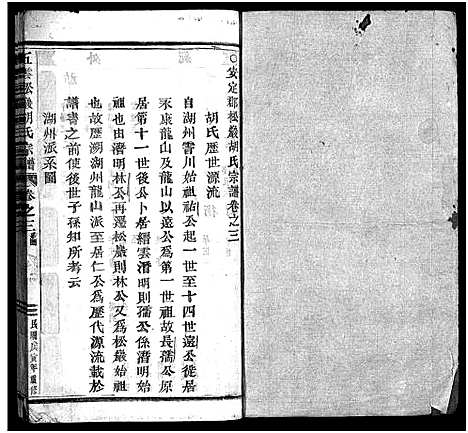 ○安定郡松巖胡氏宗譜卷之三
胡氏歷世源流
自湖州霅川始祖祐公起一世至十四世遠公徙居
永康龍山及龍山以遠公爲第一世祖故長孺公原
居第十一世後公卜居縉雲潛明則孺公係潛明始
祖也由潛明林公再遷松巖則林公又爲松巖始祖
也故歷溯湖州龍山派至居仁公爲歷代源流載於
譜書之前使後世子孫知所考云
湖州派系圖
五雲松巖胡氏宗譜 卷之三
民國戊寅年重修